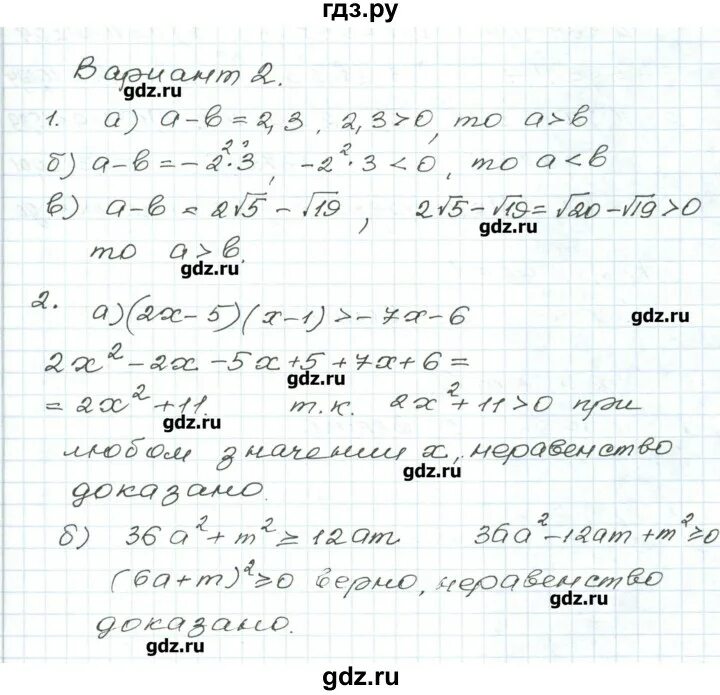 гдз.ру
Вариант 2.
gdz.ru
1. а) a-b = 2,3, 2,3>0, то a>b
б) a-b = -2²·3, -2²·3 < 0, то a<b
в) a-b = 2√5 - √19, 2√5-√19 = √20-√19>0
gdz.ru
то a>b.
gdz.ru
2. а)(2x-5)(x-1)>-7x-6
gdz.ru
2x²-2x-5x+5+7x+6=
gdz.ru
= 2x²+11. т.к. 2x²+11>0 при
gdz.ru
любом значении x, неравенство
gdz.ru
доказано.
б) 36a²+m² ≥ 12am 36a²-12am+m²≥0
(6a+m)²≥0 верно, неравенство
gdz.ru
доказано.
gdz.ru
gdz.ru